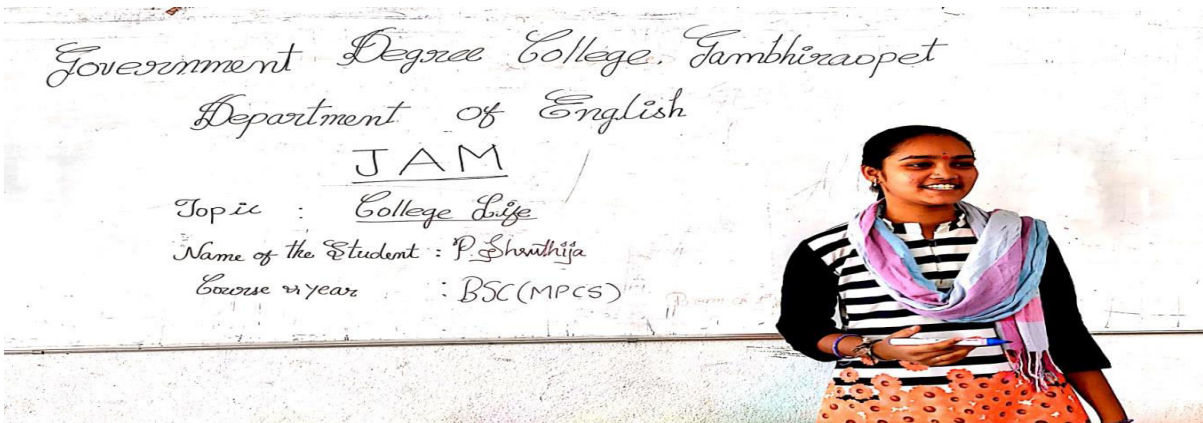 Government Degree College, Gambhiraopet
Department of English
JAM
Topic : College Life
Name of the Student : P. Shruthija
Course & year : BSC (MPCS)